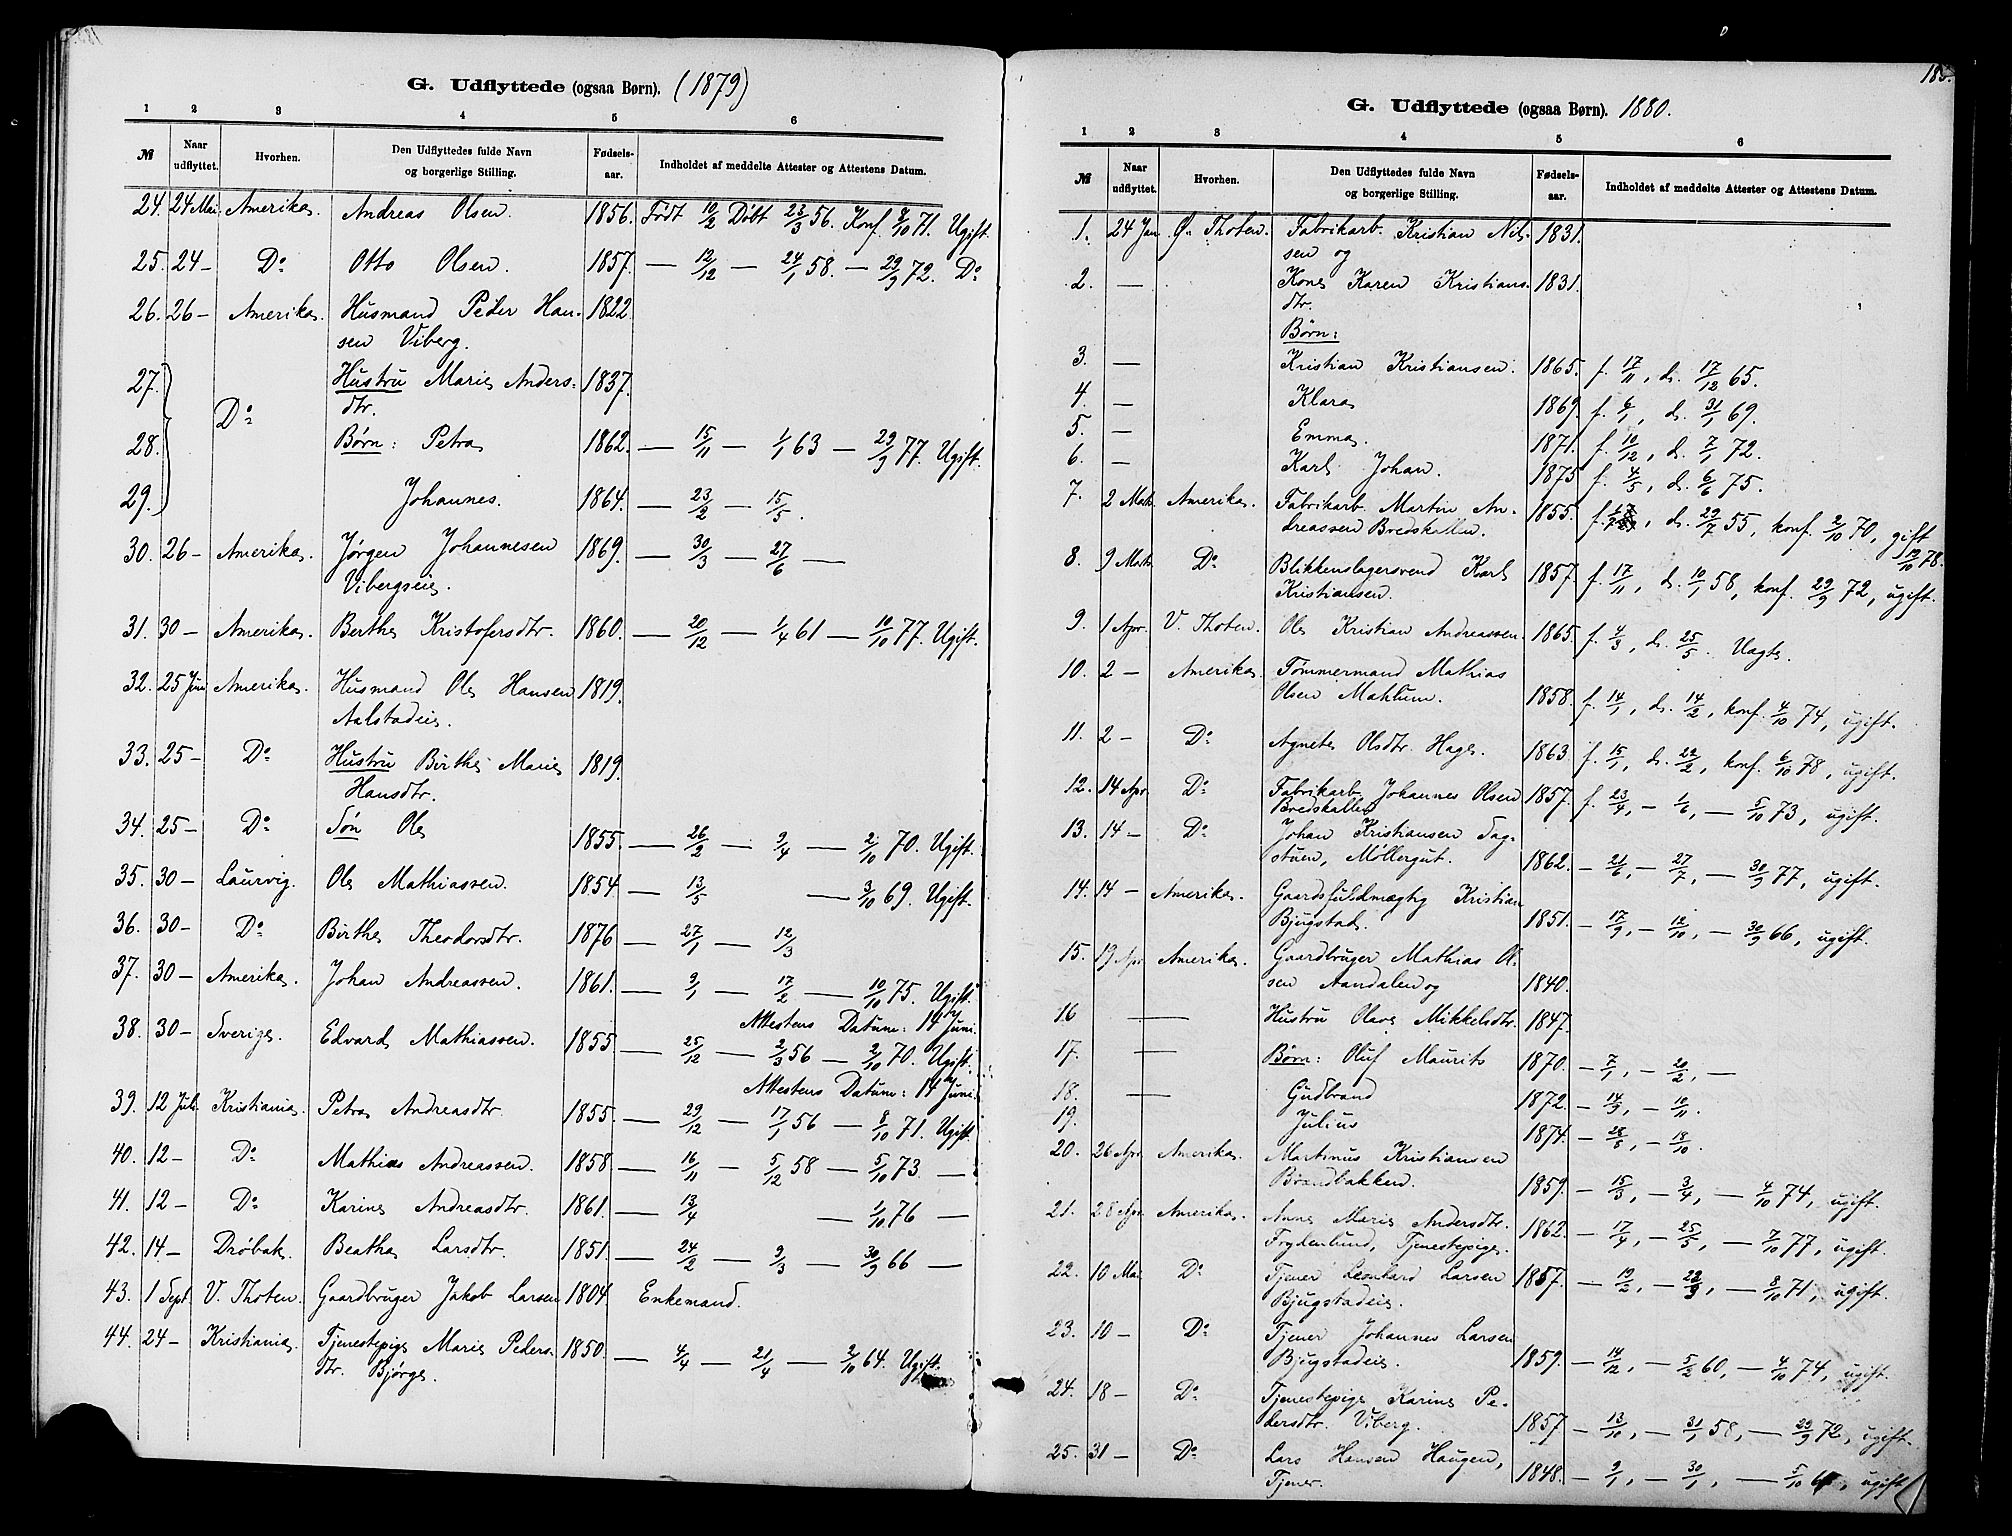 G. Udflyttede (ogsaa Børn). (1879)
1 2 3 4 5 6
№ Naar udflyttet. Hvorhen. Den Udflyttedes fulde Navn og borgerlige Stilling. Fødsels-aar. Indholdet af meddelte Attester og Attestens Datum.
24. 24 Mai. Amerika. Andreas Olsen. 1856. Født 10/2 Døbt 23/3 56. Konf. 8/10 71. Ugift.
25. 24 – Do Otto Olsen. 1857. — 12/12 — 24/1 58. — 29/9 72. Do
26. 26 – Amerika. Husmand Peder Han- 1822.
sen Viberg.
27. Hustru Marie Anders- 1837.
Do dtr.
28. Børn: Petra 1862. — 15/11 — 1/1 63 — 29/9 77. Ugift.
29. Johannes. 1864. — 23/2 — 15/5.
30. 26 – Amerika. Jørgen Johannesen 1869. — 30/3 — 27/6 —
Vibergseie.
31. 30 – Amerika. Berthe Kristofersdtr. 1860. — 20/12 — 1/4 61 — 10/10 77. Ugift.
32. 25 Juni Amerika. Husmand Ole Hansen 1819.
Aalstadeie.
33. 25 – Do Hustru Birthe Marie 1819.
Hansdtr.
34. 25 – Do Søn Ole 1855. — 26/2 — 9/4 — 2/10 70. Ugift.
35. 30 – Laurvig. Ole Mathiassen. 1854 — 13/5 — 3/10 69. Ugift.
36. 30 – Do Birthe Theodorsdtr. 1876 — 27/1 — 12/3
37. 30 – Amerika. Johan Andreassen. 1861. — 9/1 — 17/2 — 10/10 75. Ugift.
Attestens Datum: 14 Juni.
38. 30 – Sverige. Edvard Mathiassen. 1855 — 25/12 — 2/3 56 — 2/10 70. Ugift.
Attestens Datum: 14 Juni.
39. 12 Juli Kristiania. Petra Andreasdtr. 1855. — 29/12 — 17/1 56 — 8/10 71. Ugift.
40. 12 – Do Mathias Andreassen. 1858 — 16/11 — 5/12 58 — 5/10 73. —
41. 12 – Do Karine Andreasdtr. 1861. — 13/4 — 1/10 76 —
42. 14 – Drøbak. Beatha Larsdtr. 1851. — 24/2 — 9/3 — 30/9 66 —
43. 1 Sept. V. Thoten. Gaardbruger Jakob Larsen 1804. Enkemand.
44. 24 – Kristiania. Tjenestepige Marie Peders- 1850. — 4/4 — 21/4 — 2/10 64. Ugift.
dtr. Bjørge.
G. Udflyttede (ogsaa Børn). 1880.
1 2 3 4 5 6
№ Naar udflyttet. Hvorhen. Den Udflyttedes fulde Navn og borgerlige Stilling. Fødsels-aar. Indholdet af meddelte Attester og Attestens Datum.
1. 24 Jan Ø. Thoten. Fabrikarb. Kristian Nil- 1831.
sen og
2. — Kone Karen Kristians- 1831.
dtr.
Børn:
3. — Kristian Kristiansen. 1865. f. 17/11, d. 17/12 65.
4. — Klara 1869. f. 6/1, d. 31/1 69.
5. — Emma. 1871. f. 10/12, d. 7/1 72.
6. — Karl Johan. 1875 f. 4/5, d. 6/6 75.
7. 2 Mats. Amerika. Fabrikarb. Martin An- 1855. f., d. 29/7 55, konf. 2/10 70, gift
dreassen Bredskallen. 19/10 78.
8. 9 Mats. Do Blikkenslagersvend Karl 1857. f. 17/11, d. 10/1 58, konf. 29/9 72, ugift.
Kristiansen.
9. 1 Apr. V. Thoten. Ole Kristian Andreassen. 1865. f. 4/3, d. 25/5. Uægte.
10. 2 – Amerika. Tømmermand Mathias
Olsen Mahlum. 1858. f. 14/1, d. 14/2, konf. 4/10 74, ugift.
11. 2 – Do Agnete Olsdtr. Hage. 1863. f. 15/1, d. 22/2, konf. 6/10 78, ugift.
12. 14 Apr. Do Fabrikarb. Johannes Olsen 1857. f. 23/4, – 1/6, — 5/10 73, ugift.
Bredskallen
13. 14 – Do Johan Kristiansen Sag-
stuen, Møllergut. 1862. – 21/6, – 27/7, — 30/9 77, ugift.
14. 14 – Amerika. Gaardsfuldmægtig Kristian
Bjugstad. 1851. – 17/9, – 12/10, — 30/9 66, ugift.
15. 19 Apr Amerika. Gaardbruger Mathias Ol-
sen Aandalen og 1840.
16 — Hustru Olava Mikkelsdtr. 1847.
17. — Børn: Oluf Maurits 1870. – 7/1, – 20/2, —
18. — Gudbrand 1872. – 14/9, – 10/11.
19. Julius 1874. – 28/8, – 18/10.
20. 26 Apr. Amerika. Martinus Kristiansen
Brandbakken. 1859. – 15/3, – 3/4, — 4/10 74, ugift.
21. 28 Apr. Amerika. Anne Marie Andersdtr. 1862. – 17/4, – 25/5, — 7/10 77, ugift.
Frydenlund, Tjenestepige.
22. 10 Mai Do Tjener Leonhard Larsen 1857. – 19/2, – 22/3, — 8/10 71, ugift.
Bjugstadeie.
23. 10 – Do Tjener Johannes Larsen
Bjugstadeie. 1859. – 14/12, – 5/2 60, – 4/10 74, ugift.
24. 18 – Do Tjenestepige Karine Pe-
dersdtr. Viberg. 1857 – 13/10, – 31/1 58, — 29/9 72, ugift.
25. 31 – Do Lars Hansen Haugen,
Tjener. 1848. – 9/1, – 30/1, — 5/10, ugift.